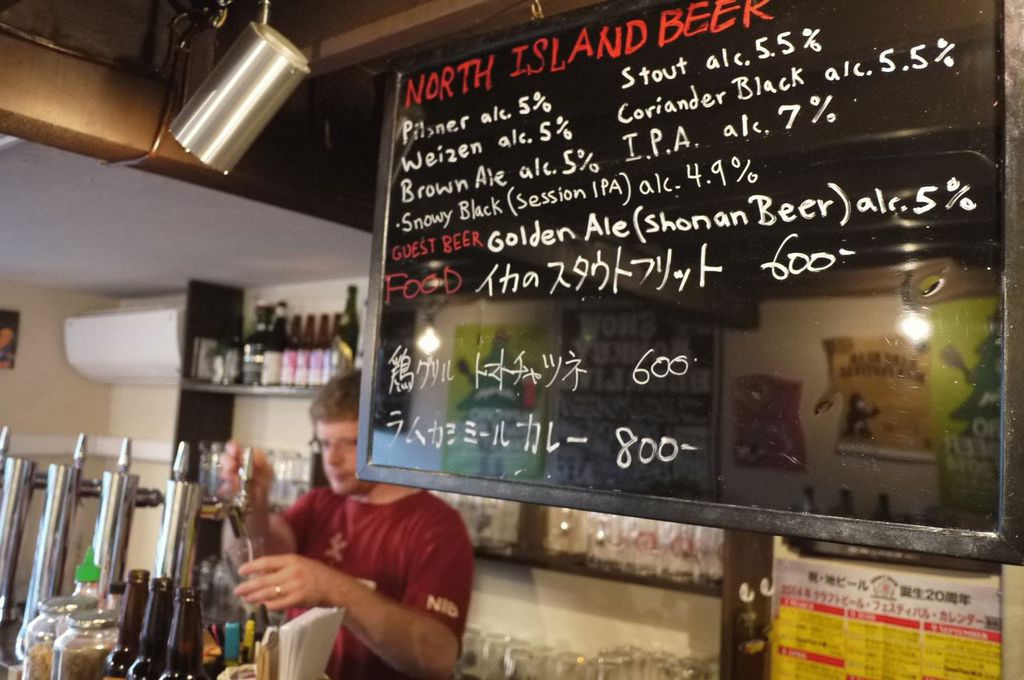 NORTH ISLAND BEER
Pilsner alc. 5% Stout alc. 5.5%
Weizen alc. 5% Coriander Black alc. 5.5%
Brown Ale alc. 5% I.P.A. alc. 7%
・Snowy Black (Session IPA) alc. 4.9%
GUEST BEER Golden Ale (Shonan Beer) alc. 5%
FOOD イカのスタウトフリット 600-
鶏グリル トマトチャツネ 600-
ラムカミミール カレー 800-
NIB
祝・地ビール 誕生20周年
2014年クラフトビール・フェスティバル・カレンダー